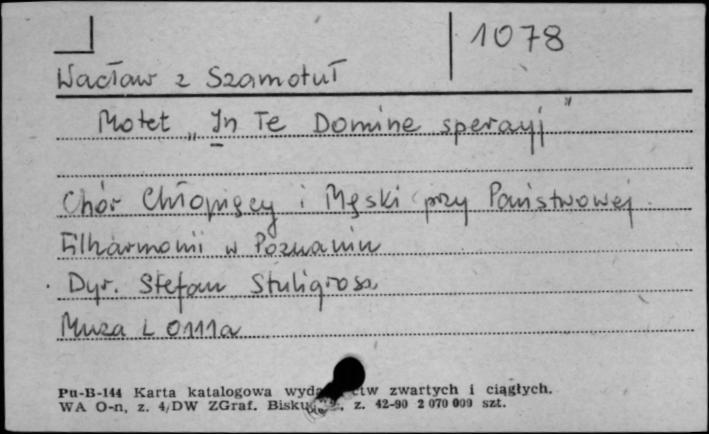 1078
Wacław z Szamotuł
Motet „In Te Domine speravi"
Chór Chłopięcy i Męski przy Państwowej
Filharmonii w Poznaniu
Dyr. Stefan Stuligrosz
Muza L 0111a
Pu-B-144 Karta katalogowa zwartych i ciągłych.
WA O-n, z. 4/DW ZGraf. z. 42-90 2 070 000 szt.